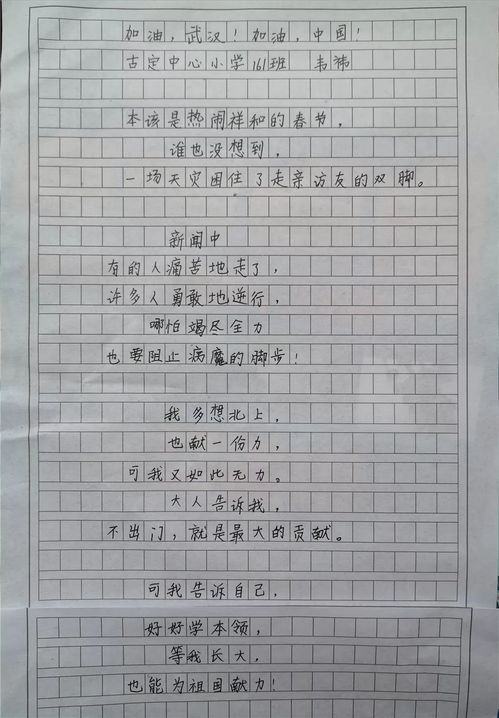 加油，武汉！加油，中国！
古定中心小学161班 韦祎
本该是热闹祥和的春节，
谁也没想到，
一场天灾困住了走亲访友的双脚。
新闻中
有的人痛苦地走了，
许多人勇敢地逆行，
哪怕竭尽全力
也要阻止病魔的脚步！
我多想北上，
也献一份力，
可我又如此无力。
大人告诉我，
不出门，就是最大的贡献。
可我告诉自己，
好好学本领，
等我长大，
也能为祖国献力！